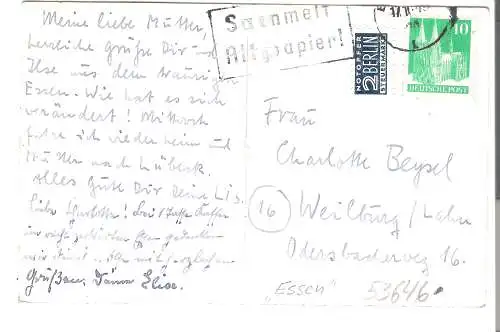 Meine liebe Mutter,
herzliche Grüße Dir u.
Ilse aus dem traurigen
Essen. Wie hat es sich
verändert! Mittwoch
fahre ich wieder heim und
Mutter nach Lübeck.
Alles Gute Dir Deine Lis.
Liebe Charlotte! Bei
gedenken
Grüßen Deine Elise.
Sammelt
Altpapier!
NOTOPFER
2 BERLIN
STEUERMARKE
10
DEUTSCHE POST
Frau
Charlotte Beysel
16 Weilburg/Lahn
Odersbacherweg 16.
"ESSEN" 53646